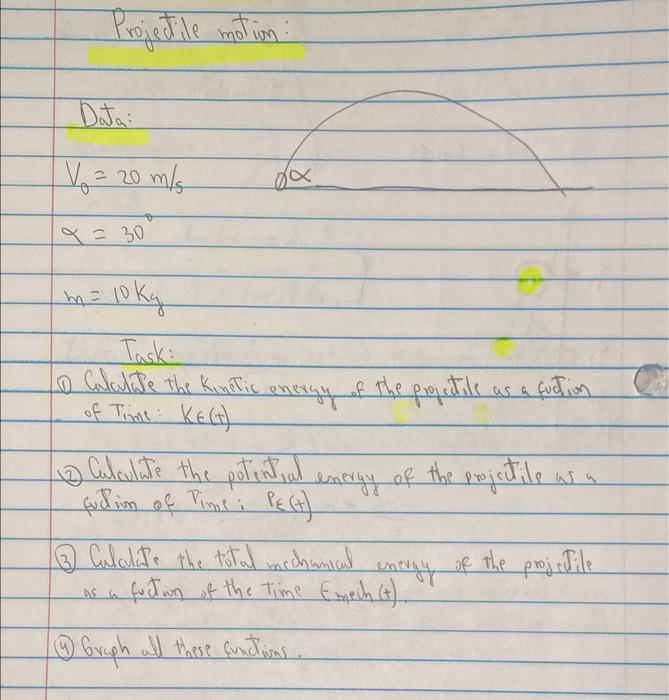 Projectile motion:
Data:
V₀ = 20 m/s
α
α = 30°
m = 10 Kg
Task:
① Calculate the Kinetic energy of the projectile as a fuction
of Time: KE(t)
② Calculate the potential energy of the projectile as a
fuction of Time: PE(t)
③ Calculate the total mechanical energy of the projectile
as a fuction of the Time Emech(t).
④ Graph all these functions.